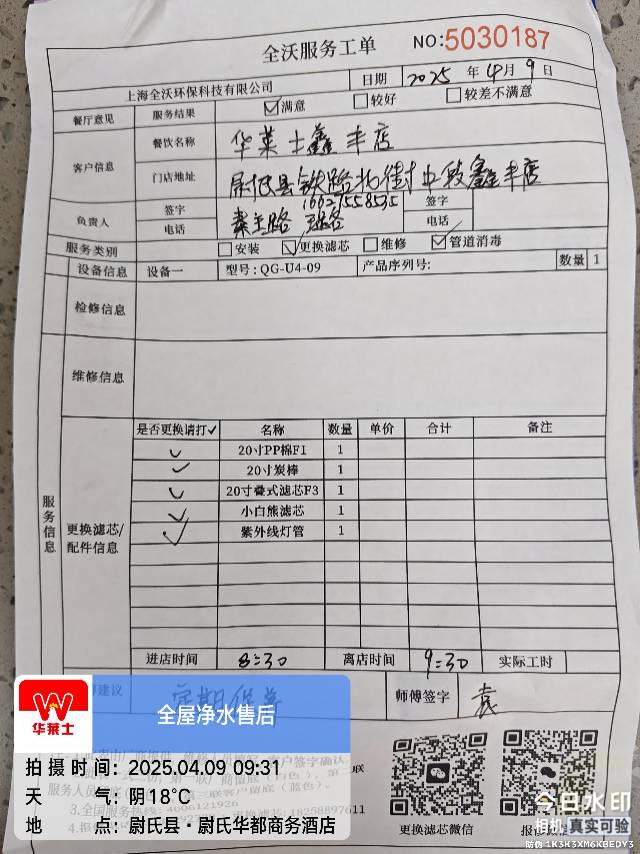 全沃服务工单
NO:5030187
上海全沃环保科技有限公司 日期 2025 年 4月 9 日
餐厅意见 服务结果 ☑满意 □较好 □较差不满意
客户信息 餐饮名称 华莱士鑫丰店
门店地址 尉氏县铁路北街中段鑫丰店
负责人 签字 16627558535 签字
电话 电话
服务类别 □安装 ☑更换滤芯 □维修 ☑管道消毒
设备信息 设备一 型号:QG-U4-09 产品序列号: 数量 1
检修信息
维修信息
服务信息
更换滤芯/配件信息
是否更换请打✓ 名称 数量 单价 合计 备注
✓ 20寸PP棉F1 1
✓ 20寸炭棒 1
✓ 20寸叠式滤芯F3 1
✓ 小白熊滤芯 1
✓ 紫外线灯管 1
进店时间 8:30 离店时间 9:30 实际工时
建议 定期保养 师傅签字 袁
华莱士
全屋净水售后
拍摄时间：2025.04.09 09:31
天气：阴18℃
地点：尉氏县·尉氏华都商务酒店
3.全国服务热线：4006121926
18258897611
更换滤芯微信
报修微信
今日水印
相机 真实可验
防伪 1K3K3XM6KBEDY3